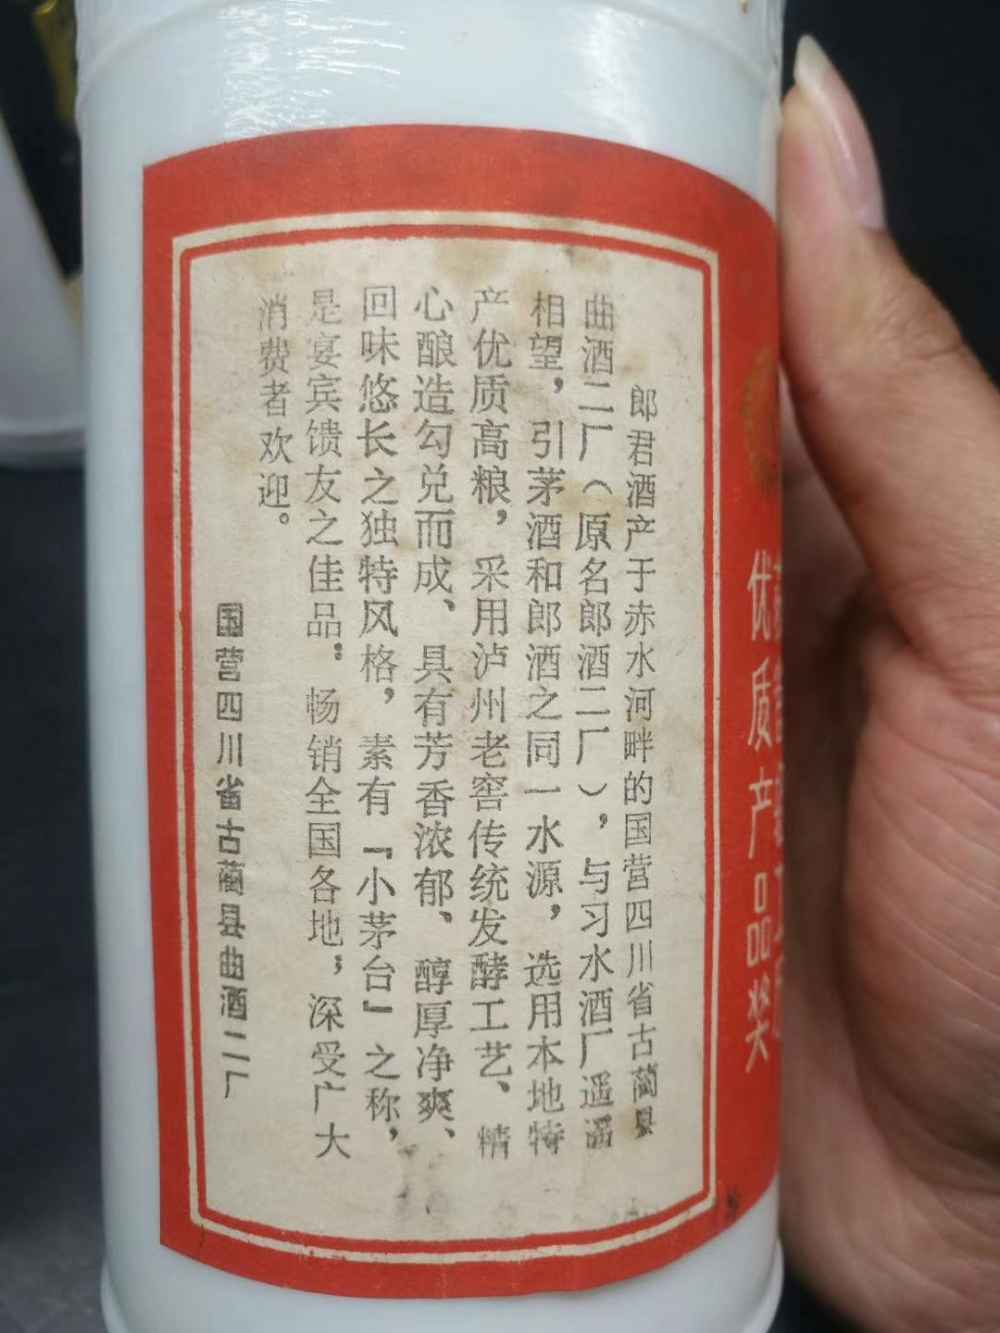 郎君酒产于赤水河畔的国营四川省古蔺县
曲酒二厂（原名郎酒二厂），与习水酒厂遥遥
相望，引茅酒和郎酒之同一水源，选用本地特
产优质高粮，采用泸州老窖传统发酵工艺、精
心酿造勾兑而成、具有芳香浓郁、醇厚净爽、
回味悠长之独特风格，素有『小茅台』之称，
是宴宾馈友之佳品；畅销全国各地；深受广大
消费者欢迎。
国营四川省古蔺县曲酒二厂
优质产品奖